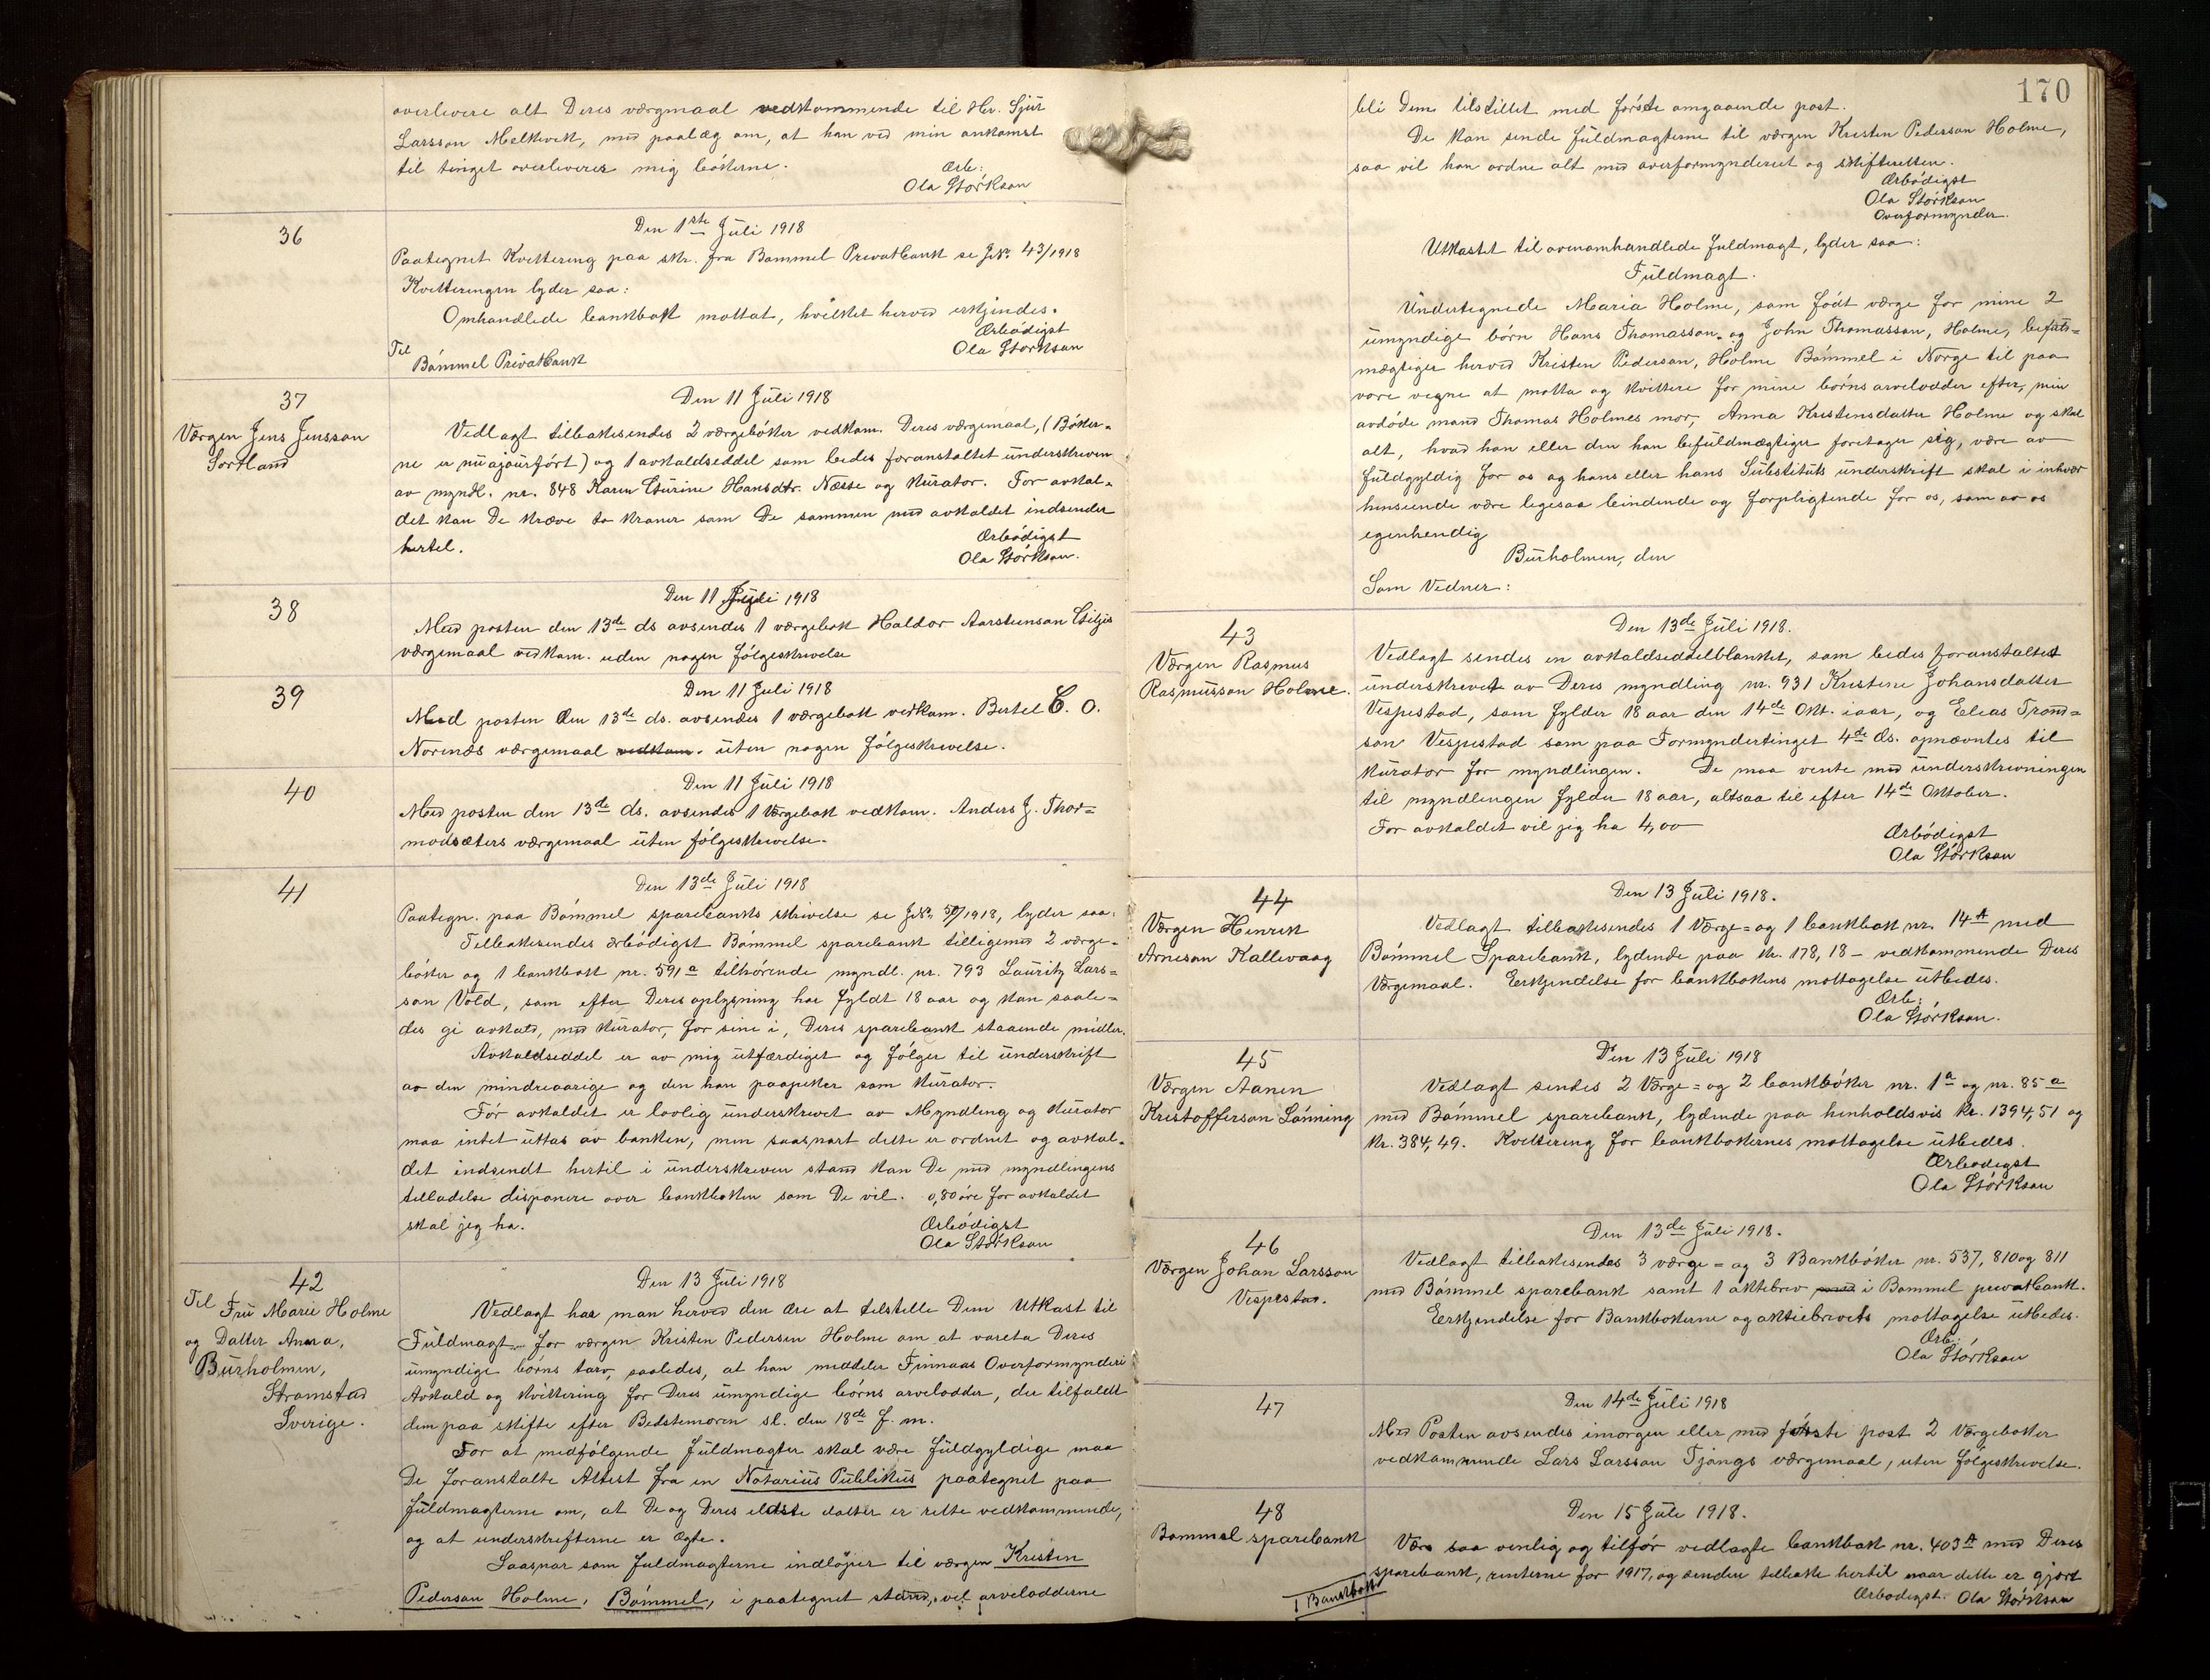 overlevere alt Deres værgmaal vedkommende til Hr. Sjur
Larsson Melkevik, med paalæg om, at han ved min ankomst
til tinget overleverer mig bökerne.
Ærb:
Ola Störkson
36
Den 1ste Juli 1918
Paategnet Kvittering paa skr. fra Bömmel Privatbank se J.Nr. 43/1918
Kvitteringen lyder saa:
Omhandlede bankbok mottat, hvilket herved erkjendes.
Ærbödigst
Ola Störkson
Til
Bömmel Privatbank
37
Værgen Jens Jensson
Sortland
Den 11 Juli 1918
Vedlagt tilbakesendes 2 værgeböker vedkom. Deres værgemaal, (Böker-
ne er nu ajourfört) og 1 avkaldseddel som bedes foranstaltet underskreven
av myndl. nr. 848 Karen Gurine Hansdtr. Næsse og kurator. For avkal-
det kan De kræve to kroner som De sammen med avkaldet indsender
hertil.
Ærbödigst
Ola Störkson.
38
Den 11 Juli 1918
Med posten den 13de ds avsendes 1 værgebok Haldor Aarsteinson Giljes
værgemaal vedkom. uden nogen fölgeskrivelse
39
Den 11 Juli 1918
Med posten den 13de ds. avsendes 1 værgebok vedkom. Bertel C. O.
Norenæs værgemaal vedkom. uten nogen fölgeskrivelse.
40
Den 11 Juli 1918
Med posten den 13de ds. avsendes 1 værgebok vedkom. Anders J. Thor=
modsæters værgemaal uten fölgeskrivelse.
41
Den 13de Juli 1918
Paategn. paa Bömmel sparebanks skrivelse se J.Nr. 50/1918, lyder saa:
Tilbakesendes ærbödigst Bömmel sparebank tilligemed 2 værge-
böker og 1 bankbok nr. 591a tilhörende myndl. nr. 793 Lauritz Lars=
son Vold, som efter Deres oplysning har fyldt 18 aar og kan saale-
des gi avkald, med kurator, for sine i, Deres sparebank staaende midler.
Avkaldseddel er av mig utfærdiget og fölger til underskrift
av den mindreaarige og den han paapeker som kurator.
För avkaldet er lovlig underskrevet av Myndling og kurator
maa intet uttas av banken, men saasnart dette er ordnet og avkal-
det indsendt hertil i underskreven stand kan De med myndlingens
tilladelse disponere over bankboken som De vil. 0,80 öre for avkaldet
skal jeg ha.
Ærbödigst
Ola Störkson
42
Til Fru Marie Holme
og Datter Anna,
Burholmen,
Strömstad
Sverige.
Den 13 Juli 1918
Vedlagt har man herved den ære at tilstille Dem Utkast til
Fuldmagt for værgen Kristen Pedersen Holme om at vareta Deres
umyndige börns tarv, saaledes, at han meddeler Finnaas Overformynderi
Avkald og kvittering for Deres umyndige börns arvelodder, der tilfaldt
dem paa skifte efter Bedstemoren sl. den 18de f. m.
For at medfölgende fuldmagter skal være fuldgyldige maa
De foranstalte Attest fra en Notarius Publikus paategnet paa
fuldmagterne om, at De og Deres eldste datter er rette vedkommende,
og at underskrifterne er ægte.
Saasnar som fuldmagterne indlöper til værgen Kristen
Pederson Holme, Bömmel, i paategnet stand, vil arvelodderne
170
bli Dem tilstillet med förste omgaaende post.
De kan sende fuldmagterne til værgen Kristen Pederson Holme,
saa vil han ordne alt med overformynderiet og skifteretten.
Ærbödigst
Ola Störkson
Overformynder.
Utkastet til ovenomhandlede fuldmagt, lyder saa:
Fuldmagt.
Undertegnede Maria Holme, som födt værge for mine 2
umyndige börn Hans Thomasson og John Thomasson, Holme, befuld=
mægtiger herved Kristen Pederson, Holme Bömmel i Norge til paa
vore vegne at motta og kvittere for mine börns arvelodder efter, min
avdöde mand Thomas Holmes mor, Anna Kristensdatter Holme og skal
alt, hvad han eller den han befuldmægtiger foretager sig, være av
fuldgyldig for os og hans eller hans Substituts underskrift skal i inhver
henseende være ligesaa bindende og forpligtende for os, som av os
egenhendig
Burholmen, den
Som Vedner:
43
Værgen Rasmus
Rasmusson Holme.
Den 13de Juli 1918.
Vedlagt sendes en avkaldseddelblanket, som bedes foranstaltet
underskrevet av Deres myndling nr. 931 Kristine Johansdatter
Vespestad, som fylder 18 aar den 14de Okt. iaar, og Elias Trond=
son Vespestad som paa Formyndertinget 4de ds. opnævntes til
kurator for myndlingen. De maa vente med underskrivningen
til myndlingen fylder 18 aar, altsaa til efter 14de Oktober.
For avkaldet vil jeg ha 4,00
Ærbödigst
Ola Störkson
44
Værgen Henrik
Arneson Kallevaag
Den 13 Juli 1918.
Vedlagt tilbakesendes 1 Værge= og 1 bankbok nr. 14A med
Bömmel Sparebank, lydende paa kr. 178,18 - vedkommende Deres
Værgemaal. Erkjendelse for bankbokens mottagelse utbedes.
Ærb:
Ola Störkson.
45
Værgen Aanen
Kristofferson Lönning
Den 13 Juli 1918
Vedlagt sendes 2 Værge= og 2 bankböker nr. 1a og nr. 85a
med Bömmel sparebank, lydende paa henholdsvis kr. 1394,51 og
kr. 384,49. Kvittering for bankbökernes mottagelse utbedes.
Ærbödigst
Ola Störkson
46
Værgen Johan Larsson
Vespestad.
Den 13de Juli 1918.
Vedlagt tilbakesendes 3 værge= og 3 Bankböker nr. 537, 810 og 811
med Bömmel sparebank samt 1 aktiebrev med i Bömmel privatbank.
Erkjendelse for Bankbökerne og aktiebrevets mottagelse utbedes.
Ærb:
Ola Störkson
47
Den 14de Juli 1918
Med Posten avsendes imorgen eller med förste post 2 Værgeböker
vedkommende Lars Larsson Tjongs værgemaal, uten fölgeskrivelse.
48
Bömmel sparebank
1 Bankbok
Den 15 Juli 1918.
Vær saa venlig og tilför vedlagte bankbok nr. 403A med Deres
sparebank, renterne for 1917, og sender tilbake hertil naar dette er gjort
Ærbödigst. Ola Störkson